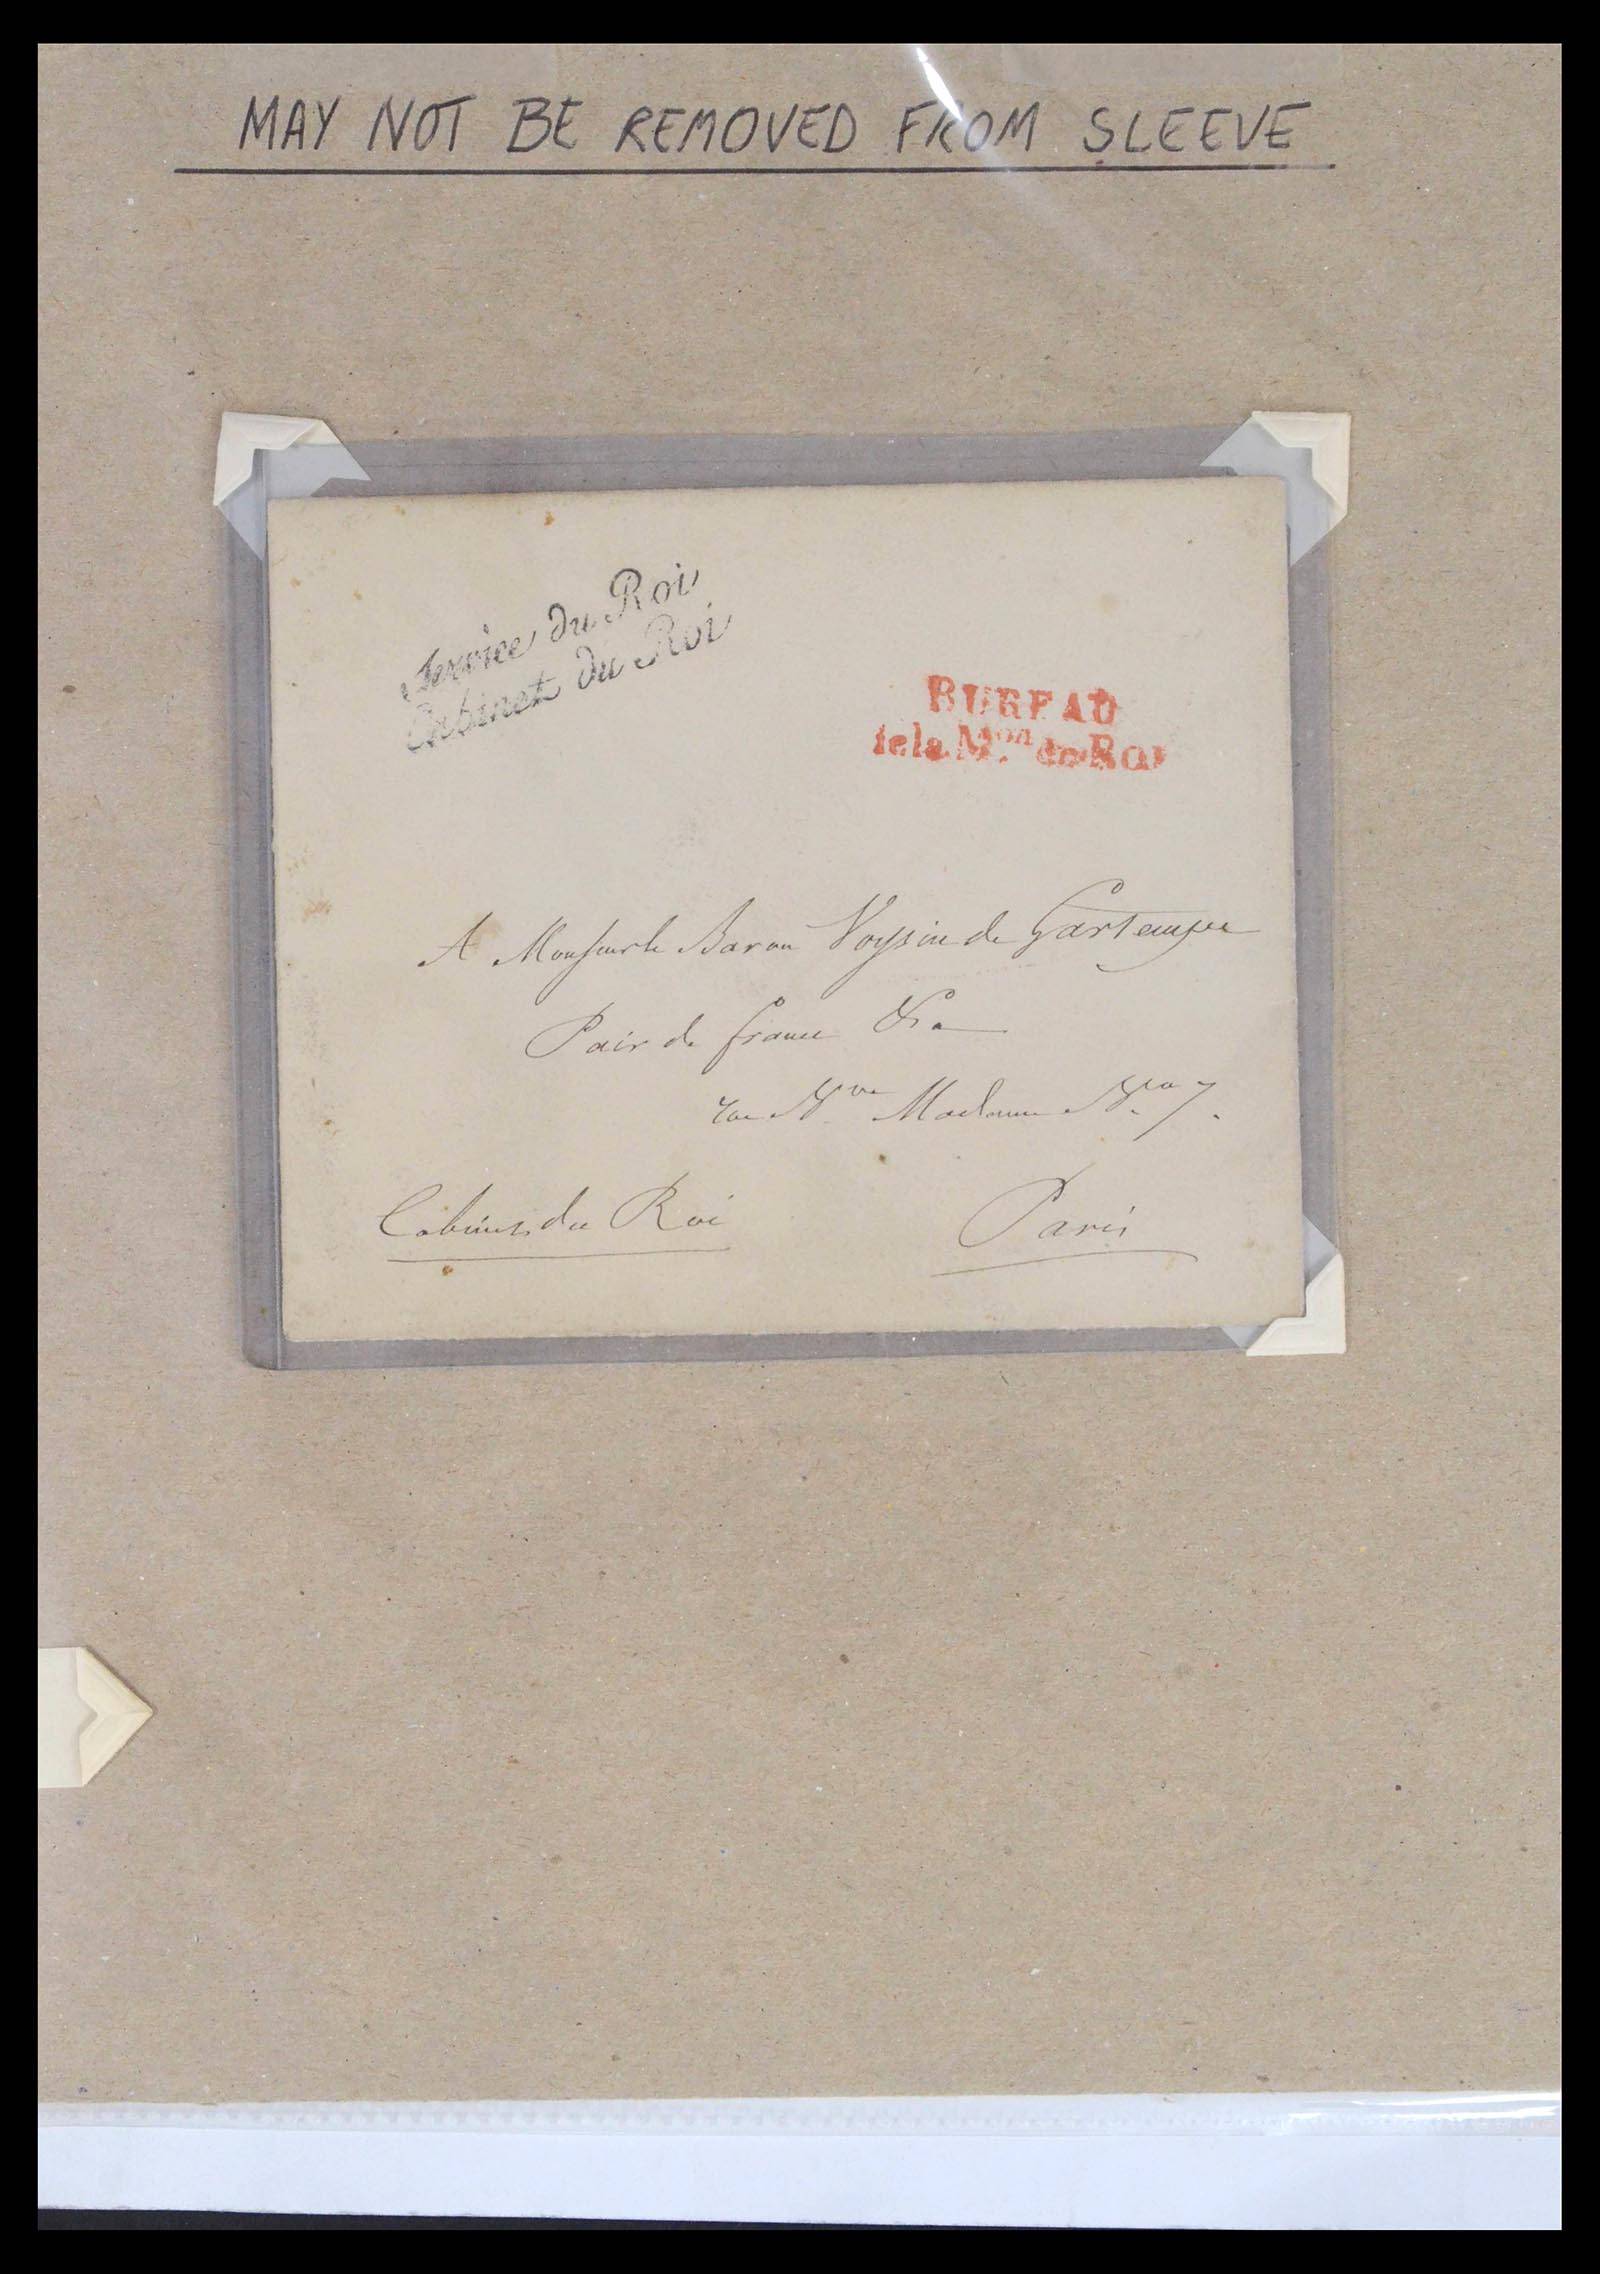 MAY NOT BE REMOVED FROM SLEEVE
Service du Roi
Cabinet du Roi
BUREAU
de la M.on du Roi
A Monsieur le Baron Voysin de Gartempe
Pair de france &a
rue Nve Madame No 7.
Cabinet du Roi
Paris